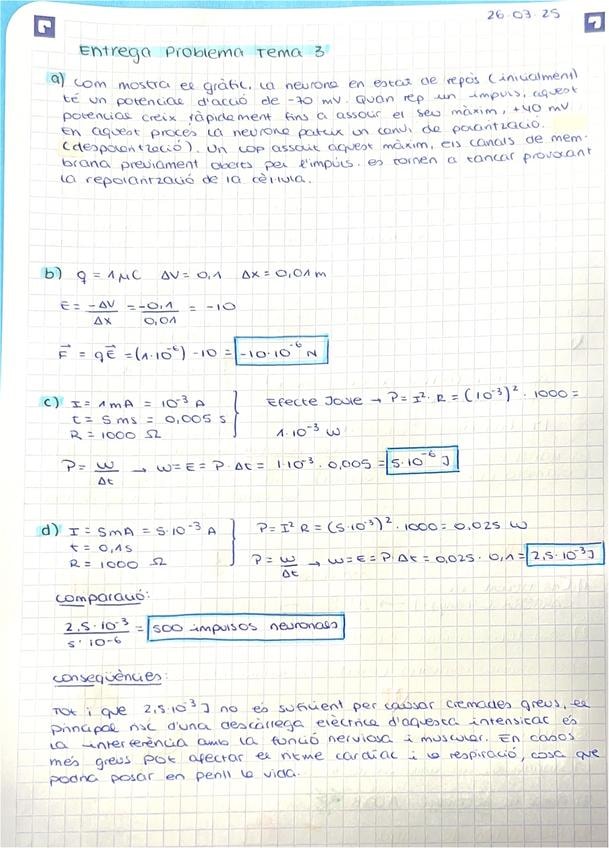 26-03-25
Entrega Problema Tema 3
a) Com mostra el gràfic, la neurona en estat de repòs (inicialment)
té un potencial d'acció de -70 mV. Quan rep un impuls, aquest
potencial creix ràpidament fins a assolir el seu màxim, +40 mV.
En aquest procés la neurona pateix un canvi de polarització.
(despolarització). Un cop assolit aquest màxim, els canals de mem-
brana prèviament oberts per l'impuls, es tornen a tancar provocant
la repolarització de la cèl·lula.
b) q = 1μC ΔV = 0,1 Δx = 0,01 m
E = -ΔV/Δx = -0,1/0,01 = -10
F⃗ = qE⃗ = (1·10⁻⁶) -10 = -10·10⁻⁶ N
c) I = 1mA = 10⁻³ A
t = 5 ms = 0,005 s
R = 1000 Ω
Efecte Joule → P = I²·R = (10⁻³)²·1000 =
1·10⁻³ W
P = W/Δt → W = E = P·Δt = 1·10⁻³·0,005 = 5·10⁻⁶ J
d) I = 5mA = 5·10⁻³ A
t = 0,1s
R = 1000 Ω
P = I² R = (5·10⁻³)²·1000 = 0,025 W
P = W/Δt → W = E = P·Δt = 0,025·0,1 = 2,5·10⁻³ J
Comparació:
2,5·10⁻³/5·10-6 = 500 impulsos neuronals
Conseqüències:
Tot i que 2,5·10⁻³ J no és suficient per causar cremades greus, el
principal risc d'una descàrrega elèctrica d'aquesta intensitat és
la interferència amb la funció nerviosa i muscular. En casos
més greus pot afectar el ritme cardíac i la respiració, cosa que
podria posar en perill la vida.